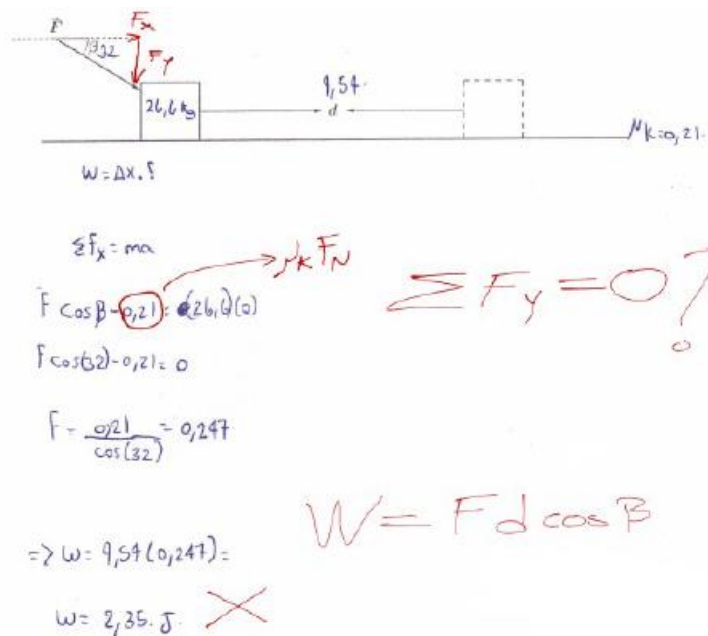 F
Fx
β 32
Fy
9,54.
26,6 kg
d
μK=0,21.
W=Δx.f
ΣFx = ma
μK FN
F cosβ - 0,21 = (26,6)(0)
Σ Fy = 0 ?
F cos(32) - 0,21 = 0
F = 0,21 / cos(32) = 0,247
W = F d cos β
=> W = 9,54 (0,247) =
W = 2,35. J. X